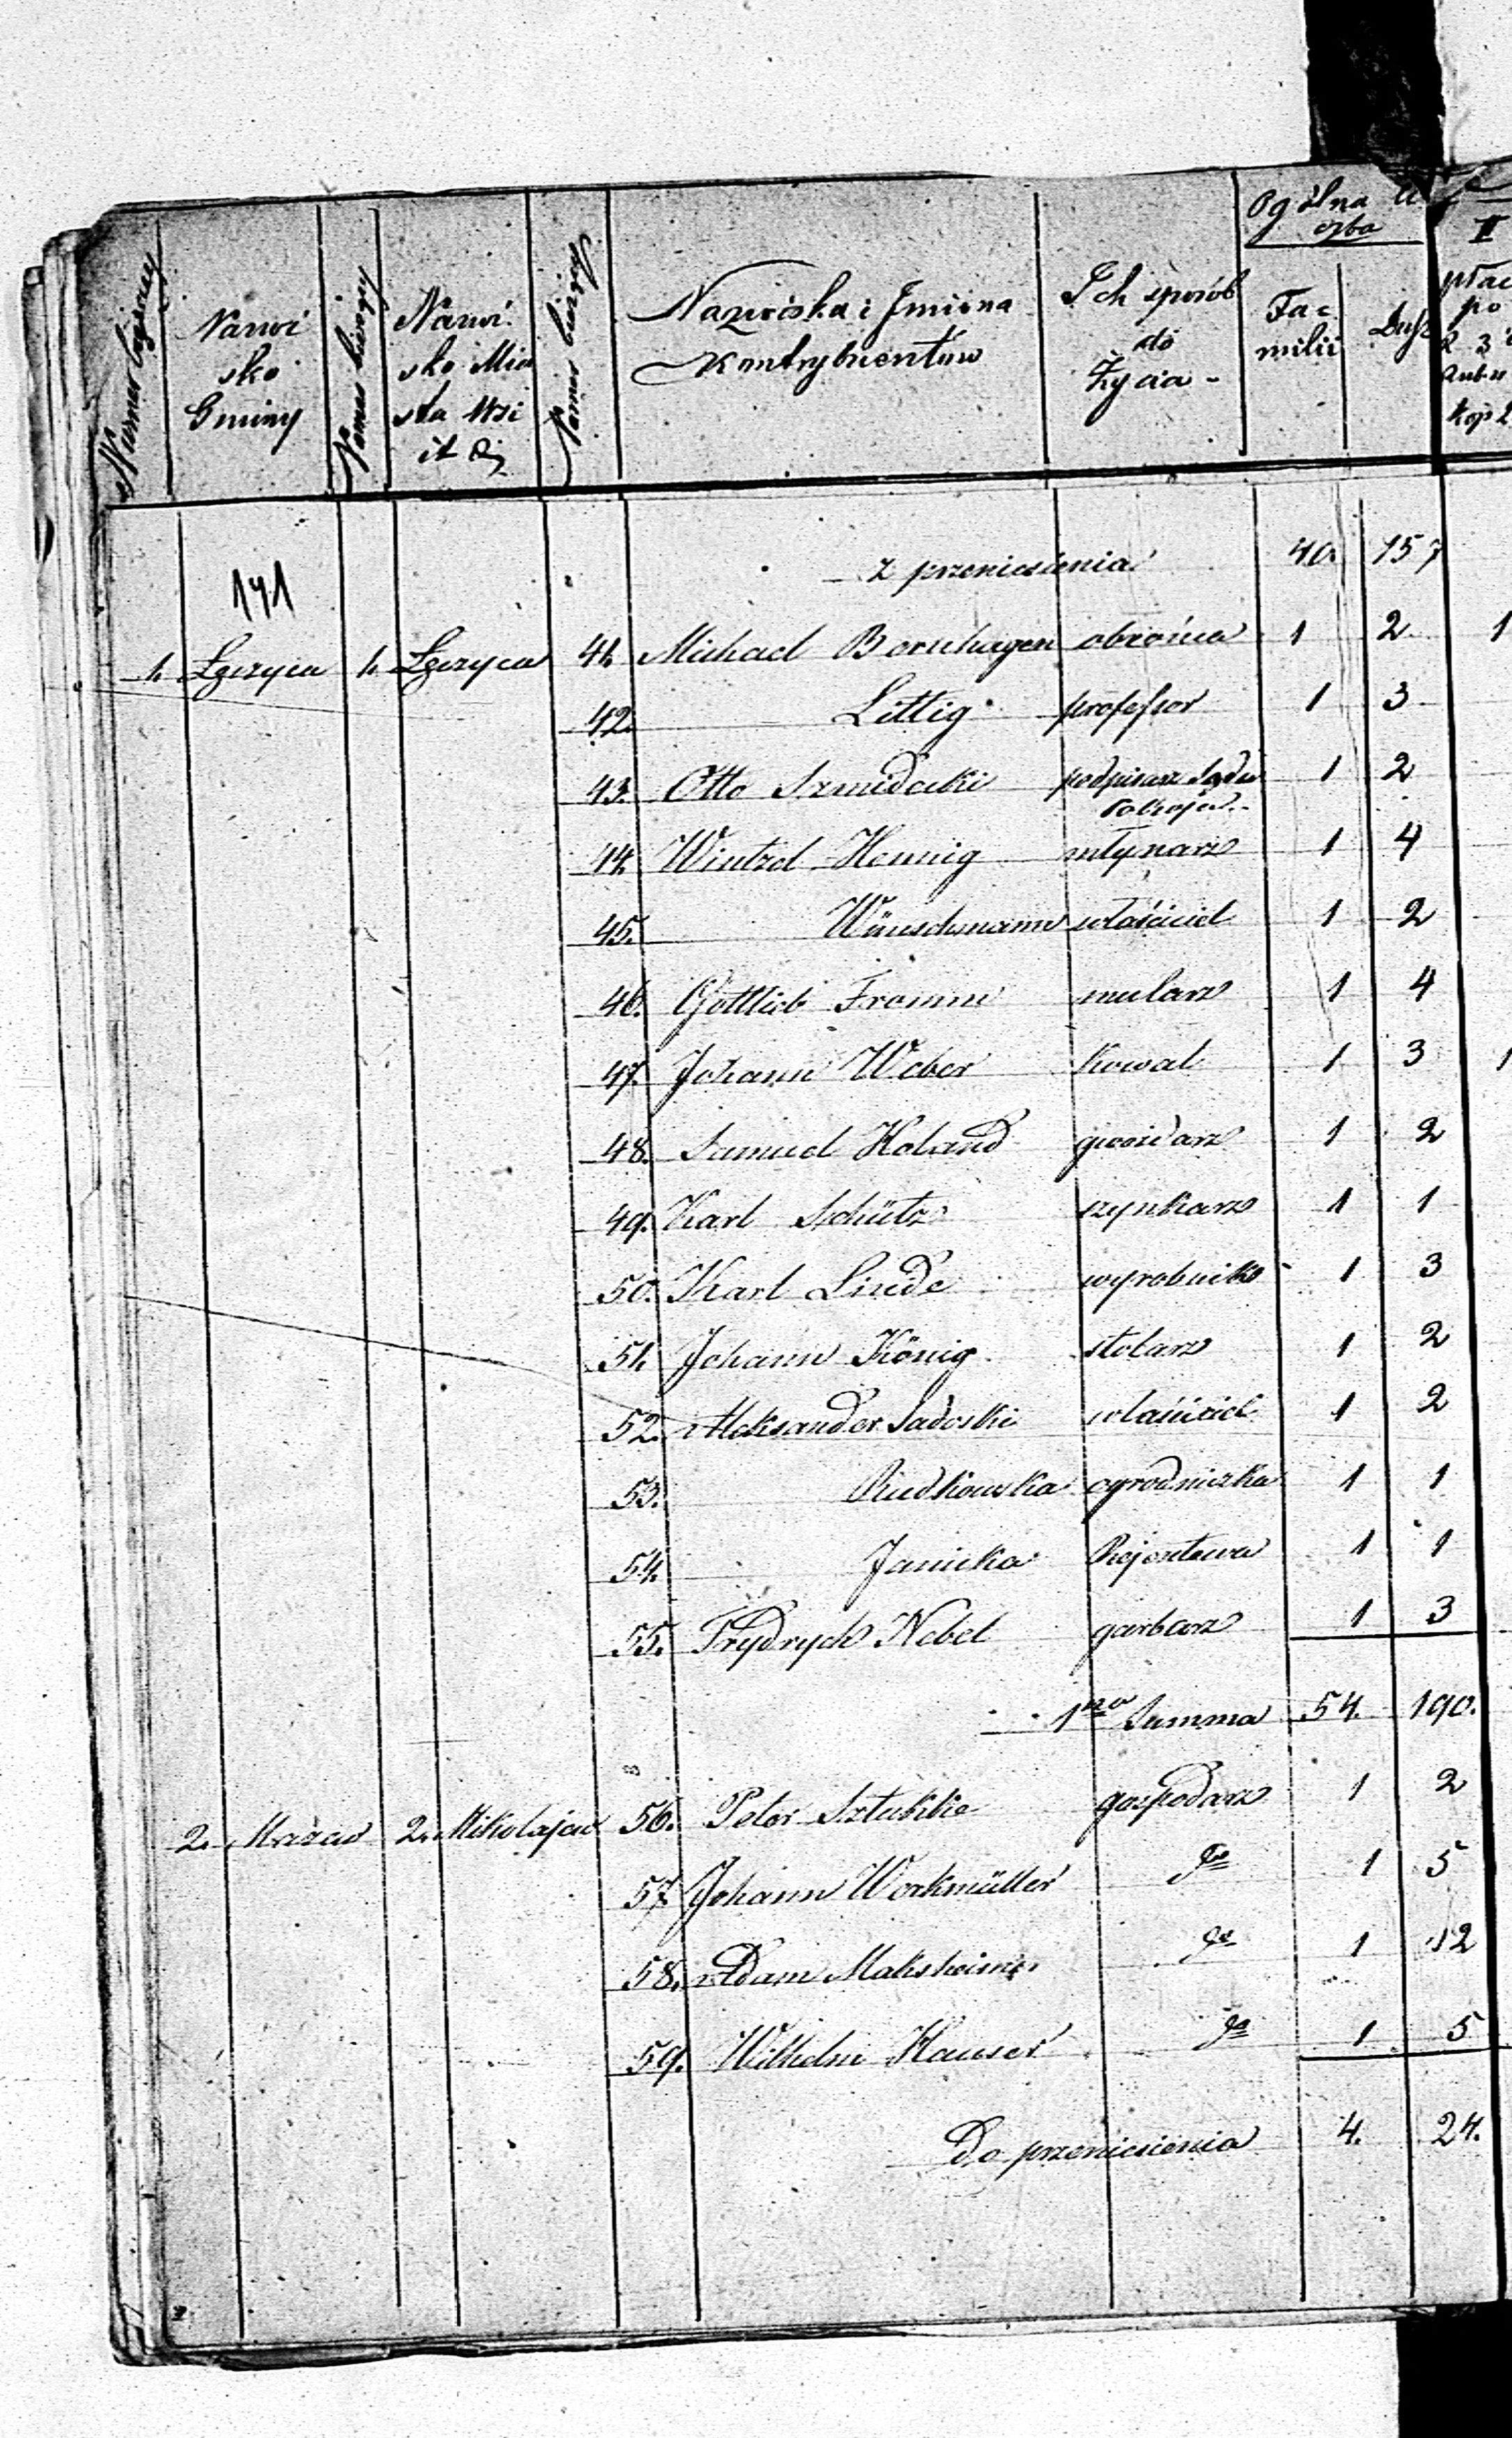 Numer bieżący
Nazwi
sko
Gminy
Numer bieżący
Nazwi
sko Mia
sta Wsi
it d.
Numer bieżący
Nazwiska i Jmiona
Kontrybuentów
Ich sposób
do
Życia -
Ogólna li
czba
Fa =
milii
Dusz
II
płac
po
R 3
Kop
z przeniesienia 40. 157
141
1. Łęczyca 1. Łęczyca 41. Michael Bornhagen obrońca 1 2 1
42. Littig professor 1 3
43. Otto Szmidecki podpisarz Sądu 1 2
Pokoju
44. Wintzel Hennig młynarz 1 4
45. Wünschmann właściciel 1 2
46. Gottlieb Fromm mularz 1 4
47. Johann Weber Kowal 1 3 1
48. Samuel Holand gwoździarz 1 2
49. Karl Schütz szynkarz 1 1
50. Karl Linde wyrobnik 1 3
51. Johann König stolarz 1 2
52. Aleksander Sadoski właściciel 1 2
53. Rudkowska ogrodniczka 1 1
54. Janicka Rejentowa 1 1
55. Frydrych Nebel garbarz 1 3
1na Summa 54. 190.
2. Mazew 2. Mikołajew 56. Peter Sztubbe gospodarz 1 2
57. Johann Workmüller do 1 5
58. Adam Maksheimer do 1 12
59. Wilhelm Hauser do 1 5
Do przeniesienia 4. 24.